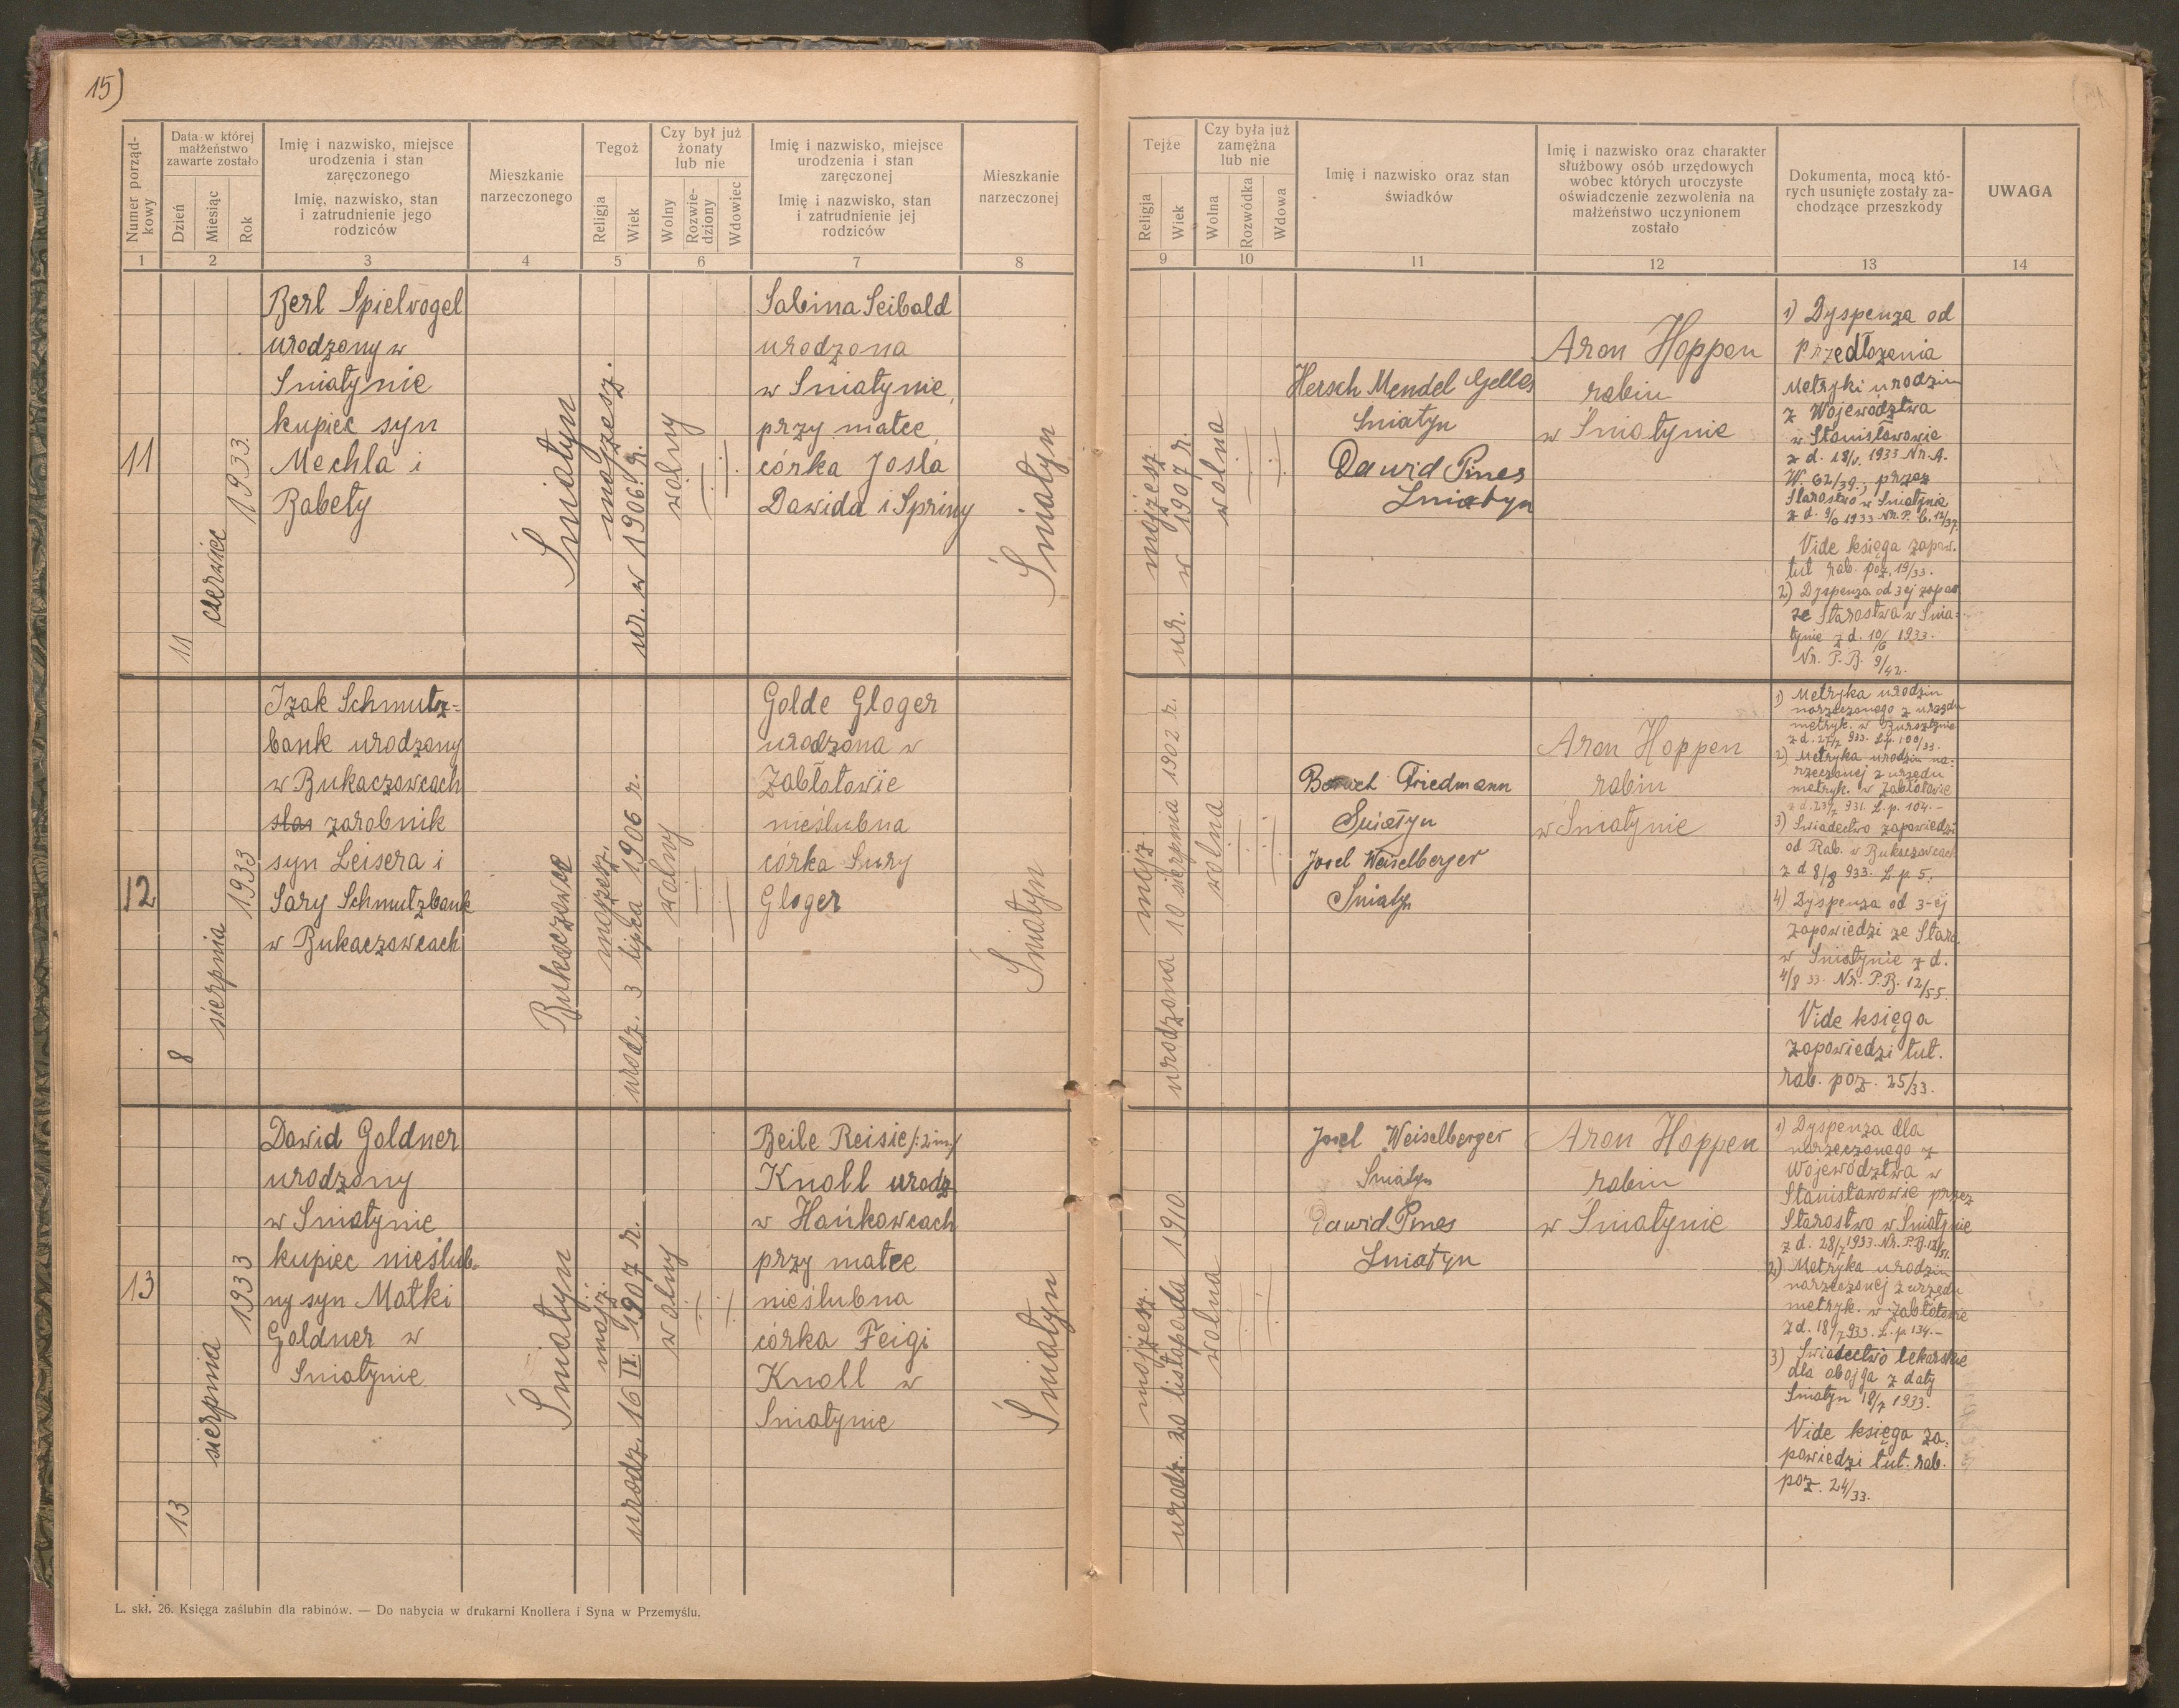 15)
Numer porząd-
kowy
Data w której
małżeństwo
zawarte zostało
Dzień
Miesiąc
Rok
Imię i nazwisko, miejsce
urodzenia i stan
zaręczonego
Imię, nazwisko, stan
i zatrudnienie jego
rodziców
Mieszkanie
narzeczonego
Tegoż
Religja
Wiek
Czy był już
żonaty
lub nie
Wolny
Rozwie-
dziony
Wdowiec
Imię i nazwisko, miejsce
urodzenia i stan
zaręczonej
Imię i nazwisko, stan
i zatrudnienie jej
rodziców
Mieszkanie
narzeczonej
1
2
3
4
5
6
7
8
Tejże
Religja
Wiek
Czy była już
zamężna
lub nie
Wolna
Rozwódka
Wdowa
Imię i nazwisko oraz stan
świadków
Imię i nazwisko oraz charakter
służbowy osób urzędowych
wobec których uroczyste
oświadczenie zezwolenia na
małżeństwo uczynionem
zostało
Dokumenta, mocą któ-
rych usunięte zostały za-
chodzące przeszkody
UWAGA
9
10
11
12
13
14
11
11
czerwiec
1933
Berl Spielvogel
urodzony w
Sniatynie
kupiec syn
Mechla i
Babety
Śniatyn
mojżesz.
ur. w 1906 r.
wolny
Sabina Seibald
urodzona
w Sniatynie,
przy matce
córka Josla
Dawida i Spriny
Śniatyn
mojżesz.
ur. w 1907 r.
wolna
Hersch Mendel Gelles
Sniatyn
Dawid Pines
Sniatyn
Aron Hoppen
rabin
w Sniatynie
1) Dyspenza od
Przedłożenia
Metryki urodzin
z Województwa
w Stanisławowie
z d. 18/V. 1933 Nr. A.
W. 62/39., przez
Starostwo w Sniatynie
z d. 9/6 1933 Nr. P. B. 12/37.
Vide księga zapow.
tut rab. poz. 19/33.
2) Dyspenza od 3ej zapow.
ze Starostwa w Snia-
tynie z d. 10/6 1933.
Nr. P. B. 9/42.
12
8
sierpnia
1933
Izak Schmutz=
bank urodzony
w Bukaczowcach
zarobnik
syn Leisera i
Sary Schmutzbank
w Bukaczowcach
Bukaczowce
mojżesz.
urodz. 3 lipca 1906 r.
wolny
Golde Gloger
urodzona w
Zabłotowie
nieślubna
córka Sury
Gloger
Śniatyn
mojż.
urodzona 10 sierpnia 1902 r.
wolna
Boruch Friedmann
Sniatyn
Josel Weiselberger
Sniatyn
Aron Hoppen
rabin
w Sniatynie
1) Metryka urodzin
narzeczonego z urzędu
metryk. w Bursztynie
z d. 27/7 933. L.p. 100/33.
2) Metryka urodzin na-
rzeczonej z urzędu
metryk. w Zabłotowie
z d. 23/7 931. L. p. 104.-
3) Swiadectwo zapowiedzi
od Rab. w Bukaczowcach
z d 8/8 933. L. p. 5.
4) Dyspenza od 3-ej
zapowiedzi ze Staro.
w Sniatynie z d.
4/8 33. Nr. P. B. 12/55.
Vide księga
zapowiedzi tut.
rab. poz. 25/33.
13
13
sierpnia
1933
Dawid Goldner
urodzony
w Sniatynie
kupiec nieślub-
ny syn Matki
Goldner w
Sniatynie
Śniatyn
mojż.
urodz. 16 IX. 1907 r.
wolny
Beile Reisie /:2 im/
Knoll urodz
w Hańkowcach
przy matce
nieślubna
córka Feigi
Knoll w
Sniatynie
Śniatyn
mojżesz.
urodz. 20 listopada 1910
wolna
Josel Weiselberger
Sniatyn
Dawid Pines
Sniatyn
Aron Hoppen
rabin
w Sniatynie
1) Dyspenza dla
narzeczonego z
Województwa w
Stanisławowie przez
Starostwo w Sniatynie
z d. 28/7 1933. Nr. P. B. 12/51.
2) Metryka urodzin
narzeczonej z urzędu
metryk. w Zabłotowie
z d. 18/7 933. L. p 134.-
3) Swiadectwo lekarskie
dla obojga z daty
Sniatyn 18/7 1933.
Vide księga za-
powiedzi tut. rab.
poz. 24/33.
L. skł. 26. Księga zaślubin dla rabinów. — Do nabycia w drukarni Knollera i Syna w Przemyślu.